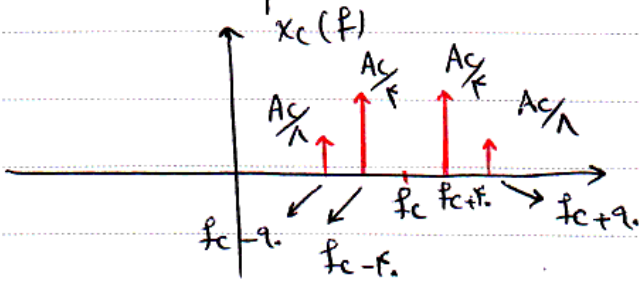 x_c(f)
Ac/۴ Ac/۴
Ac/۸ Ac/۸
fc fc+۴۰ fc+۹۰
fc-۹۰
fc-۴۰